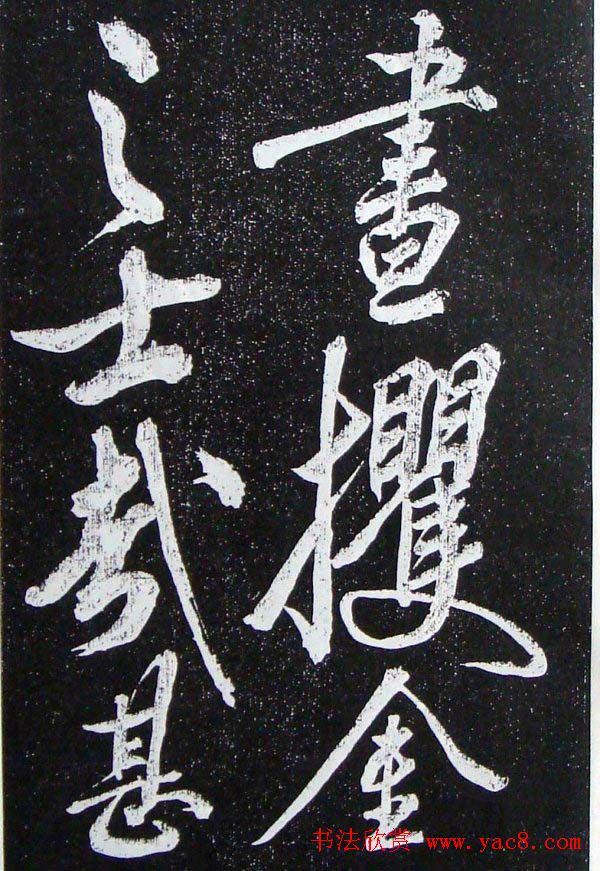 晝攫金
之士哉甚
书法欣赏 www.yac8.com